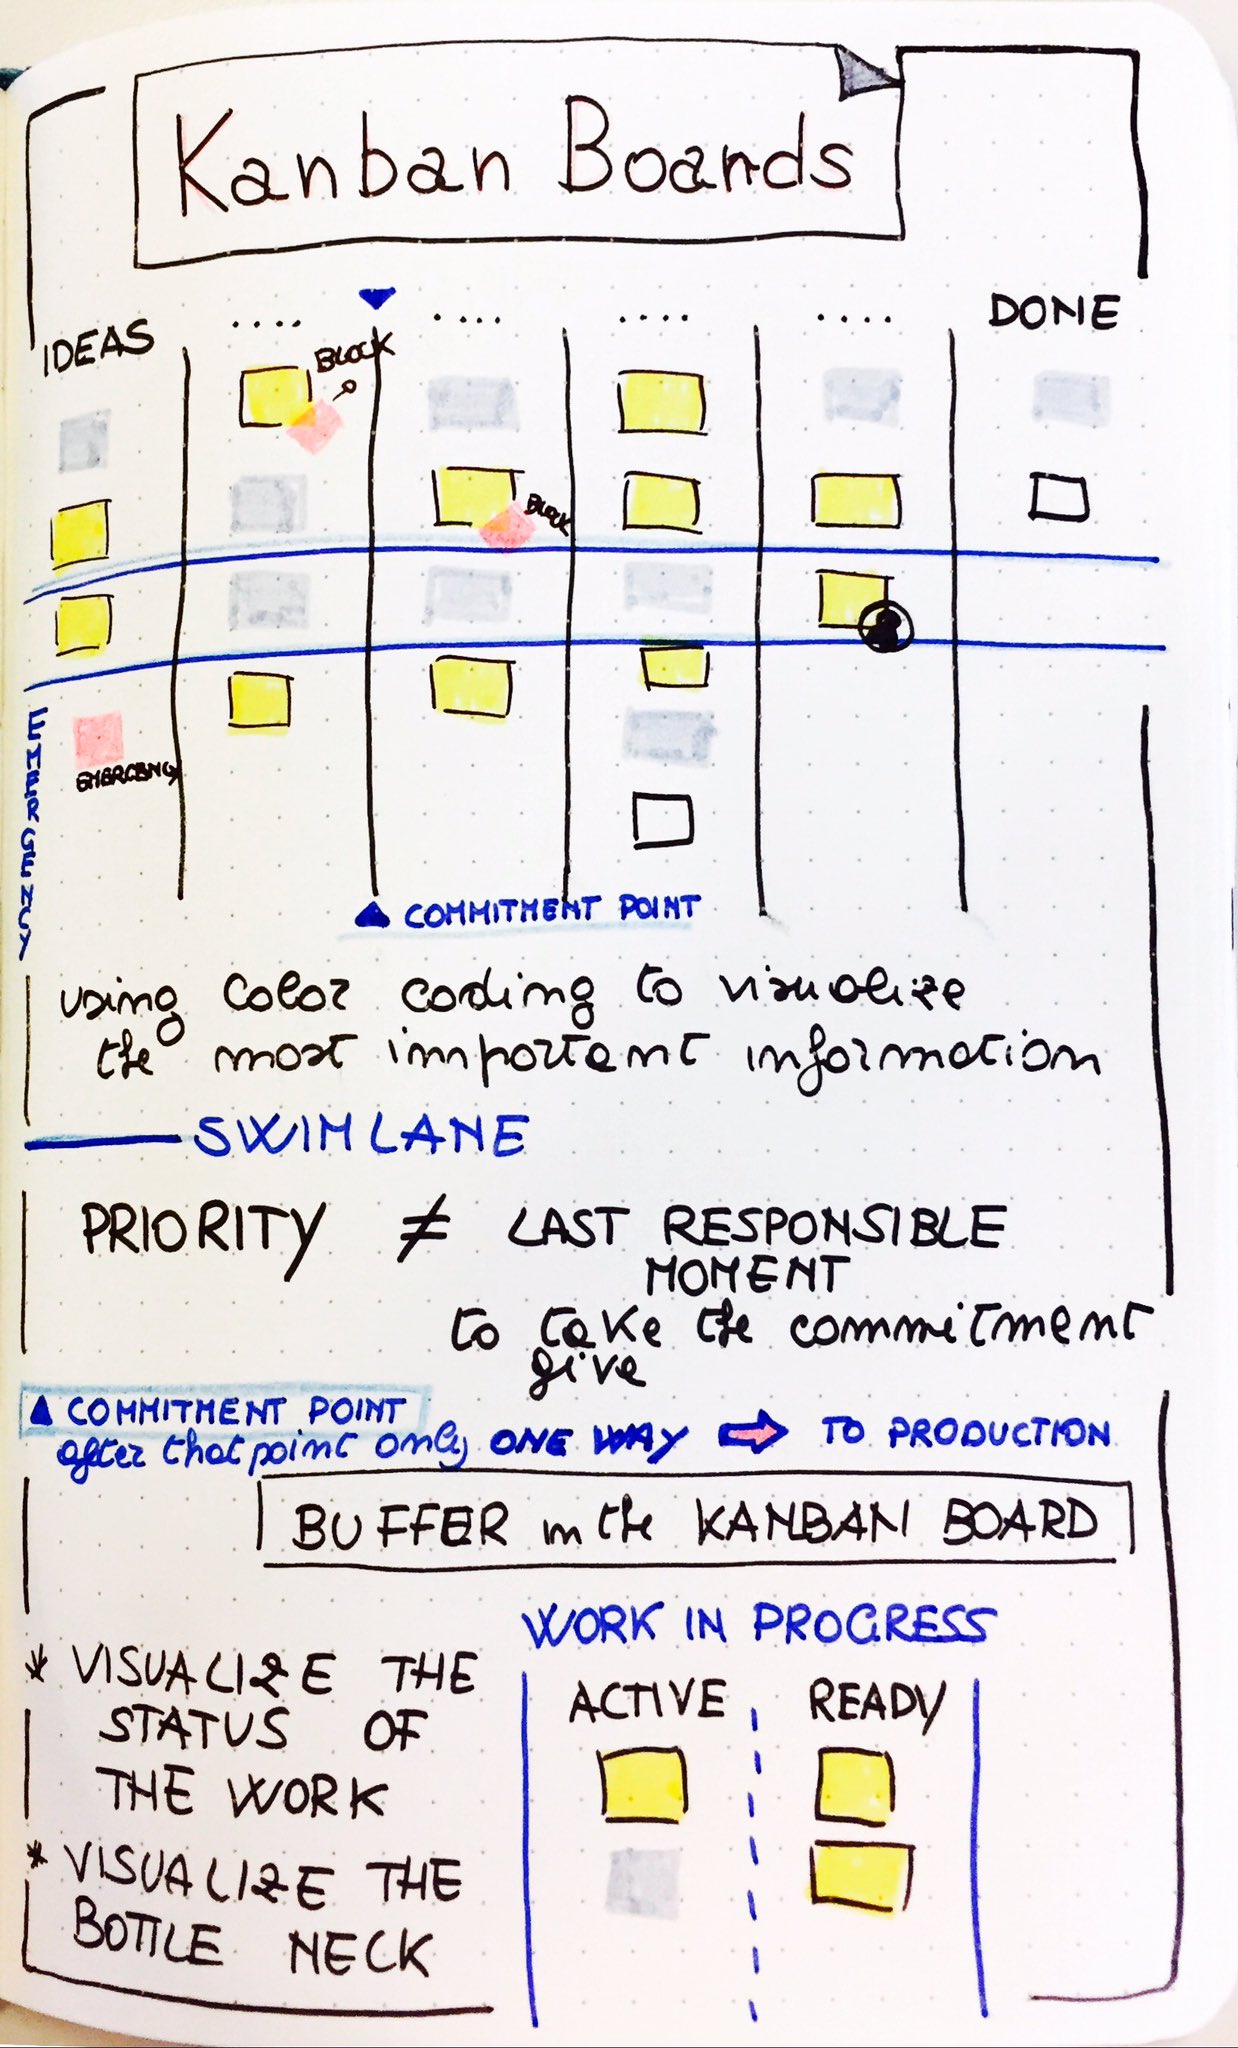 Kanban Boards
IDEAS .... .... .... .... DONE
BLOCK
BLOCK
EMERGENCY
EMERGENCY
COMMITMENT POINT
using color coding to visualize
the most important information
SWIMLANE
PRIORITY ≠ LAST RESPONSIBLE
MOMENT
to take the commitment
give
COMMITMENT POINT
after that point only ONE WAY TO PRODUCTION
BUFFER in the KANBAN BOARD
WORK IN PROGRESS
ACTIVE READY
* VISUALIZE THE
STATUS OF
THE WORK
* VISUALIZE THE
BOTTLE NECK